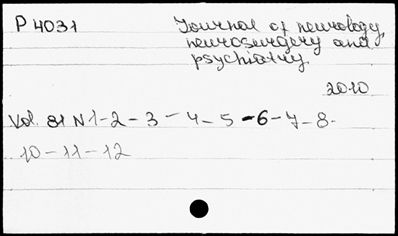 P 4031 Journal of neurology,
neurosurgery and
psychiatry
2010
Vol. 81 N 1-2-3-4-5-6-7-8-
10-11-12